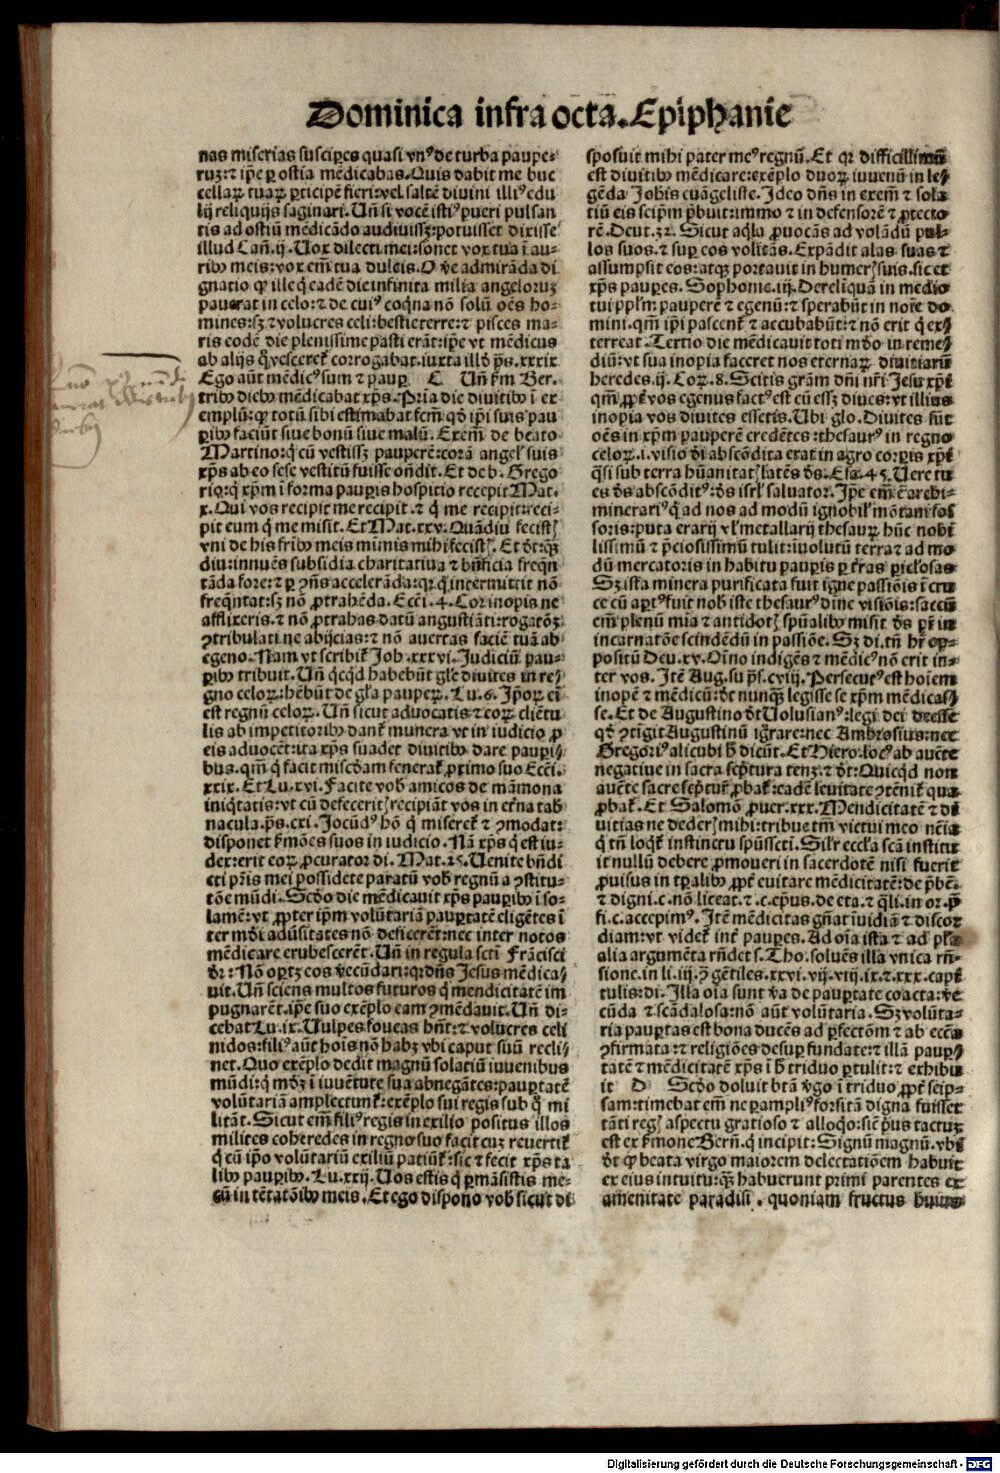 Dominica infra octa. Epiphanie
nas miserias suscipes quasi vnꝰ de turba paupe⸗
ruz: ⁊ ip̄e ꝑ ostia mēdicabas. Quis dabit me buc
cellaꝝ tuaꝝ ꝑticipē fieri: vel saltē diuini illiꝰ edu
lij reliquijs saginari. Uñ si vocē istiꝰ pueri pulsan
tis ad ostiū mēdicādo audiuissꝫ: potuisset dixisse
illud Cañ. ij. Uox dilecti mei: sonet vox tua ī au⸗
ribꝰ meis: vox em̄ tua dulcis. O v̄e admirāda di
gnatio ꝙ ille q̇ eadē die infinita milia angeloruꝫ
pauerat in celo: ⁊ de cuiꝰ coq̇na nō solū oēs ho⸗
mines: sꝫ ⁊ volucres celi: bestie terre: ⁊ pisces ma⸗
ris eodē die plenissime pasti erāt: ip̄e vt mēdicus
ab alijs q̇ vesceret̃ corrogabat. iuxta illđ p̄s. xxxix.
Ego aūt mēdicꝰ sum ⁊ pauꝑ C Uñ ẜm Ber.
tribꝰ diebꝰ mēdicabat xp̄s. Pria die diuitibꝰ ī ex
emplū: ꝙ totū sibi estimabat fcm̄ qđ ip̄i suis pau
ꝑibꝰ faciūt siue bonū siue malū. Exem̄ de beato
Martino: q̇ cū vestissꝫ pauperē: corā angel̓ suis
xp̄s ab eo sese vestitū fuisse oñdit. Et de b. Grego
rio: q̇ xp̄m ī forma pauꝑis hospitio recepit Mat.
x. Qui vos recipit me recipit. ⁊ q̇ me recipit: reci⸗
pit eum q̇ me misit. Et Mat. xxv. Quādiu fecistꝭ
vni de his fr̄ibꝰ meis mīmis mihi fecistꝭ. Et đt: q̄ꝫ
diu: innuēs subsidia charitatiua ⁊ bñficia freq̄n
tāda fore: ⁊ ꝑ ꝯñs accelerāda: qꝛ q̇ intermittit nō
freq̄ntat: sꝫ nō ꝓtrahēda. Ecci. 4. Cor inopis ne
afflixeris. ⁊ nō ꝓtrahas datū angustiāti: rogatōꝫ
ꝯtribulati ne abijcias: ⁊ nō auertas faciē tuā ab
egeno. Nam vt scribit̃ Job. xxxvi. Judiciū pau⸗
ꝑibꝰ tribuit. Uñ q̇cq̇d habebūt gl̓e diuites in re⸗
gno celoꝝ: hēbūt de gl̓a pauperꝝ. Lu. 6. Jp̄oꝝ em̄
est regnū celoꝝ. Uñ sicut aduocatis ⁊ coꝝ cliētu
lis ab impetitoribꝰ dant̃ munera vt in iudicio ꝓ
eis aduocēt: ita xp̄s suadet diuitibꝰ dare pauꝑi⸗
bus. qm̄ q̇ facit miscđam fenerat̃ ꝓximo suo Ecci.
xxix. Et Lu. xvi. Facite vob̓ amicos de māmona
iniq̇tatis: vt cū defecerit̓ recipiāt vos in et̓na tab
nacula. p̄s. cxi. Jocūdꝰ hō q̇ miseret̃ ⁊ ꝯmodat:
disponet ẜmōes suos in iudicio. Nā xp̄s q̇ est iu⸗
dex: erit eoꝝ ꝓcurator di. Mat. 25. Uenite bñdi
cti pr̄is mei possidete paratū vob̓ regnū a ꝯstitu⸗
tōe mūdi. Scđo die mēdicauit xp̄s pauꝑibꝰ ī so⸗
lamē: vt ꝓpter ip̄m volūtariā pauꝑtatē eligētes ī
ter mđi adūsitates nō deficerēt: nec inter notos
mēdicare erubescerēt. Uñ in regula scti Frācisci
đr: Nō oꝑtꝫ eos v̄ecūdari: qꝛ dn̄s Jesus mēdica⸗
uit. Uñ sciens multos futuros q̇ mendicitatē im
pugnarēt. ip̄e suo exēplo eam ꝯmēdauit. Uñ di⸗
cebat Lu. ix. Uulpes foueas hñt: ⁊ volucres celi
nidos: filiꝰ aūt hois nō habꝫ vbi caput suū recli⸗
net. Quo exēplo dedit magnū solatiū iuuenibus
mūdi: q̇ mđꝫ ī iuuētute sua abnegātes: pauꝑtatē
volūtariā amplectunt̃: exēplo sui regis sub q̇ mi
litāt. Sicut em̄ filiꝰ regis in exilio positus illos
milites coheredes in regno suo facit cuꝫ reuertit̃
q̇ cū ip̄o volūtariū exiliū patiūt̃: sic ⁊ fecit xp̄s ta
libꝰ pauꝑibꝰ. Lu. xxij. Uos estis q̇ ꝑmāsistis me⸗
cū in tētatōibꝰ meis. Et ego dispono vob̓ sicut di
sposuit mihi pater meꝰ regnū. Et qꝛ difficillimū
est diuitibꝰ mēdicare: exēplo duoꝝ iuuenū in le⸗
gēda Johis euāgeliste. Jdeo dn̄s in exem̄ ⁊ sola
tiū eis seip̄m p̄buit: immo ⁊ in defensorē ⁊ ꝓtecto
rē. Deut. 32. Sicut aq̇la ꝓuocās ad volādū pul⸗
los suos. ⁊ suꝑ eos volitās. Expādit alas suas ⁊
assumpsit eos: atqꝫ portauit in humerꝭ suis. sic et
xp̄s pauꝑes. Sophonie. iij. Derelīquā in medio
tui pplm̄ pauperē ⁊ egenū: ⁊ sperabūt in noīe do
mini. qm̄ ip̄i pascent̃ ⁊ accubabūt: ⁊ nō erit q̇ ex⸗
terreat. Tertio die mēdicauit toti mđo in reme⸗
diū: vt sua inopia faceret nos eternaꝝ diuitiarū
heredes. ij. Coꝝ. 8. Scitis grām dn̄i nr̄i Jesu xp̄i
qm̄ ꝓpt̓ vos egenus factꝰ est cū essꝫ diues: vt illius
inopia vos diuites essetis. Ubi glo. Diuites sūt
oēs in xp̄m pauperē credētes: thesaurꝰ in regno
celoꝝ. i. visio đi abscōdita erat in agro corꝑis xp̄i
q̇si sub terra hūanitatꝭ latēs đs. Esa. 45. Uere tu
es đs abscōditꝰ: đs isrl̓ saluator. Jp̄e em̄ ē archi⸗
minerariꝰ q̇ ad nos ad modū ignobil̓ mōtani fos
soris: puta erarij vl̓ metallarij thesauꝝ hūc nobi
lissimū ⁊ p̄ciosissimū tulit: inuolutū terra ⁊ ad mo
dū mercatoris in habitu pauꝑis ꝑ t̓ras ꝑiclosas
Sꝫ ista minera purificata fuit igne passiōis ī cru
ce cū aꝑtꝰ fuit nob̓ iste thesaurꝰ diuine visiōis: saccū
em̄ plenū mīa ⁊ antidotꝭ sp̄ualibꝰ misit đs pr̄ in
incarnatōe scindēdū in passiōe. Sꝫ di. tn̄ hr̄ op⸗
positū Deu. xv. Oīno indigēs ⁊ mēdicꝰ nō erit in⸗
ter vos. Jtē Aug. su p̄s. cviij. Persecutꝰ est hoīem
inopē ⁊ mēdicū: đt nunq̄ꝫ legisse se xp̄m mēdicas⸗
se. Et de Augustino đt Uolusianꝰ: legi dei deesse
qđ ꝯtigit Augustinū ignorare: nec Ambrosius: nec
Gregoriꝰ alicubi h̓ dicūt. Et Hiero. locꝰ ab aucte
negatiue in sacra sc̓ptura tenꝫ. ⁊ đt: Quicq̇d non
aucte sacre sc̓ptur̓ ꝓbat̃: eadē leuitate ꝯtēnit̃ qua
ꝓbat̃. Et Salomō ꝓuer. xxx. Mendicitatē ⁊ di
uitias ne dederꝭ mihi: tribue tm̄ victui meo nc̄ia
q̇ tn̄ loq̇t̃ instinctu sp̄usscti. Sil̓r eccl̓a scā institu
it nullū debere ꝓmoueri in sacerdotē nisi fuerit
ꝓuisus in tꝑalibꝰ ꝓpt̓ euitare mēdicitatē: de p̄bē.
⁊ digni. c. nō liceat. ⁊ c. ep̄us. de eta. ⁊ q̇li. in or. p̄
fi. c. accepimꝰ. Jtē mēdicitas gn̄at īuidiā ⁊ discor
diam: vt videt̃ int̓ pauꝑes. Ad oīa ista ⁊ ad pl̓a
alia argumēta rn̄det s. Tho. soluēs illa vnica rn̄⸗
sione. in li. iij. ꝯ gētiles. xxvi. vij. viij. ix. ⁊. xxx. capi⸗
tulis: di. Illa oīa sunt v̄a de pauꝑtate coacta: v̄e
cūda ⁊ scādalosa: nō aūt volūtaria. Sꝫ volūta⸗
ria pauꝑtas est bona ducēs ad ꝑfectōm ⁊ ab eccl̓a
ꝯfirmata: ⁊ religiōes desuꝑ fundate: ⁊ illā pauꝑ⸗
tatē ⁊ mēdicitatē xp̄s ī h̓ triduo ꝑtulit: ⁊ exhibu
it D Scđo doluit btā v̄go ī triduo ꝓpt̓ seip⸗
sam: timebat em̄ ne ꝑampliꝰ forsitā digna fuisset
tāti regꝭ aspectu gratioso ⁊ alloq̇o: sic̓ p̄us tactuꝫ
est ex ẜmone Berñ. q̇ incipit: Signū magnū. vbi
đt ꝙ beata virgo maiorem delectatiōem habuit
ex eius intuitu: q̄ꝫ habuerunt primi parentes ex
amenitate paradisi. quoniam fructus huius
Digitalisierung gefördert durch die Deutsche Forschungsgemeinschaft - DFG